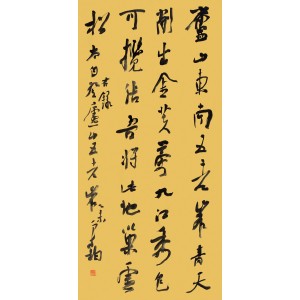 廬山東南五老峯青天
削出金芙蓉九江秀色
可攬結吾將此地巢雲
松 太白登廬山五老峯